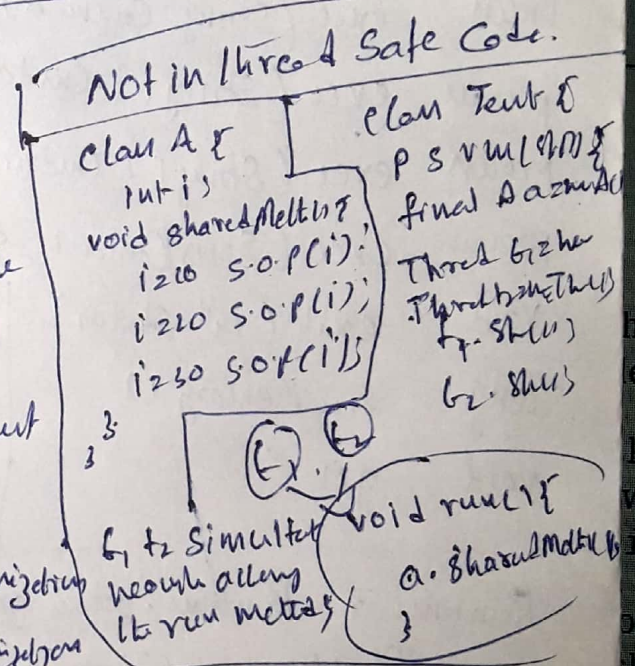 Not in thread Safe Code.
Class A {
int i;
void sharedMeth() {
i=10 S.O.P(i);
i=20 S.O.P(i);
i=30 S.O.P(i);
}
}
Class Test {
P S v m(
final A a=new A(
Thred t1=ne
Thred t2=
t1.St()
t2.St()
t1
t2
t1 t2 Simultat
neously
the run method
void run() {
a. sharedMeth();
}